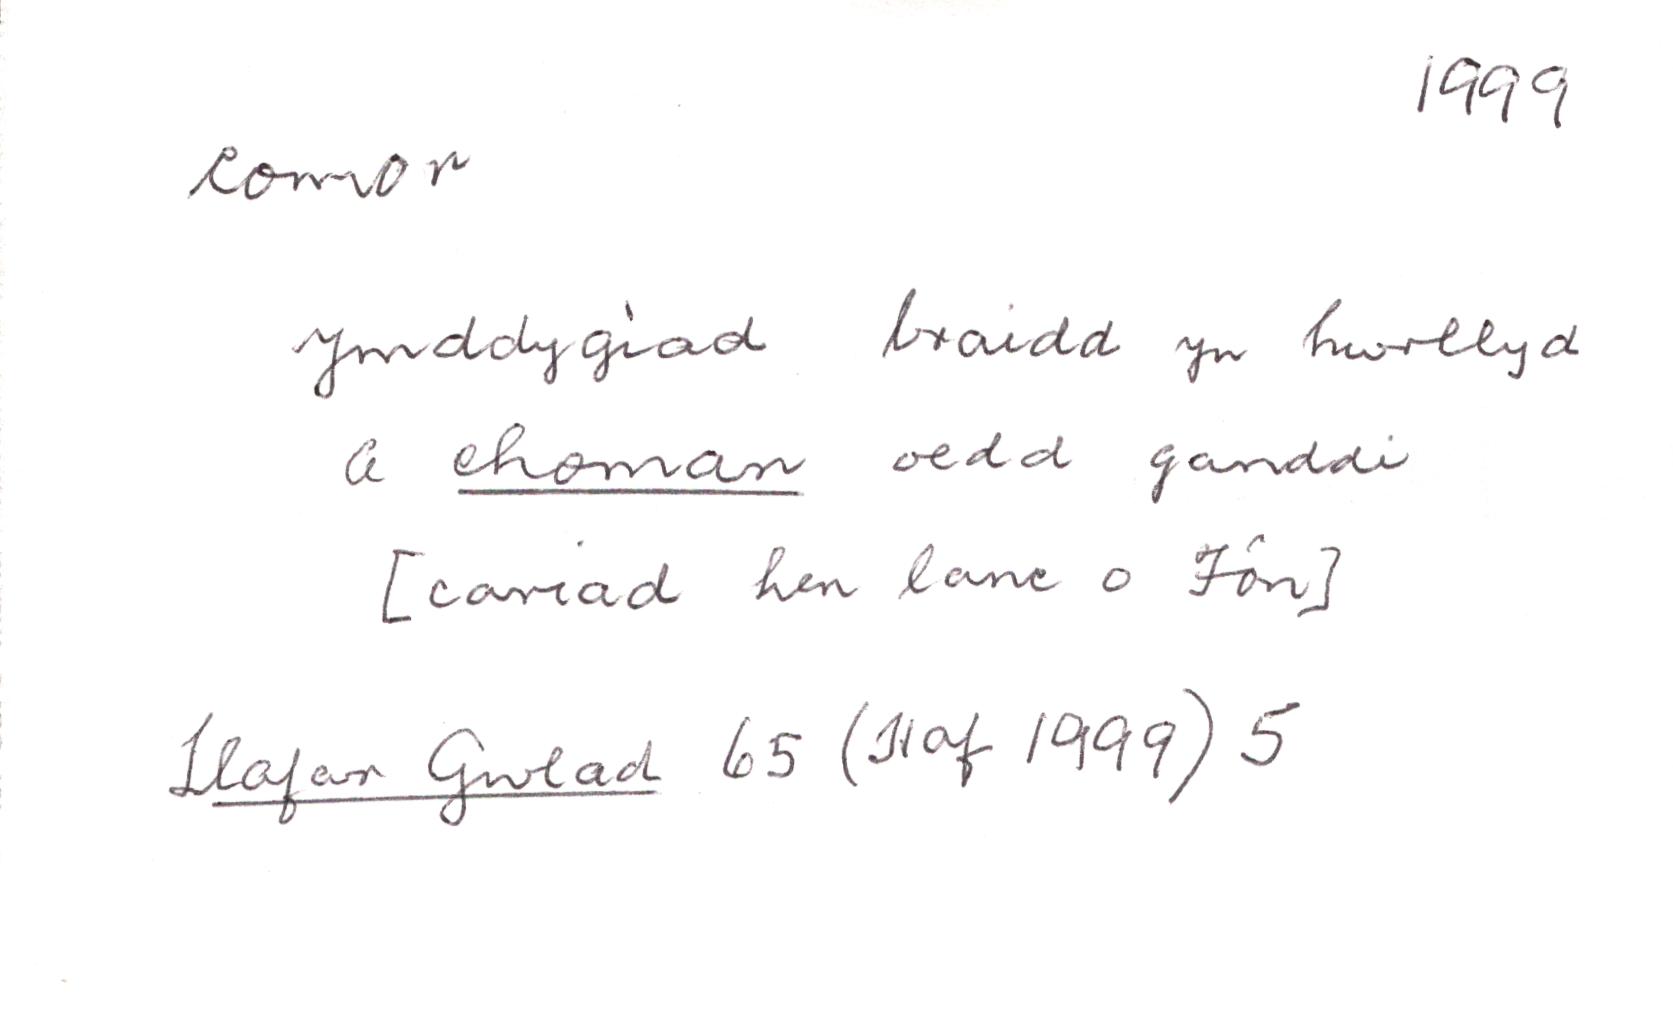 1999
comon
ymddygiad braidd yn hwrllyd
a choman oedd ganddi
[cariad hen lanc o Fôn]
Llafar Gwlad 65 (Haf 1999) 5